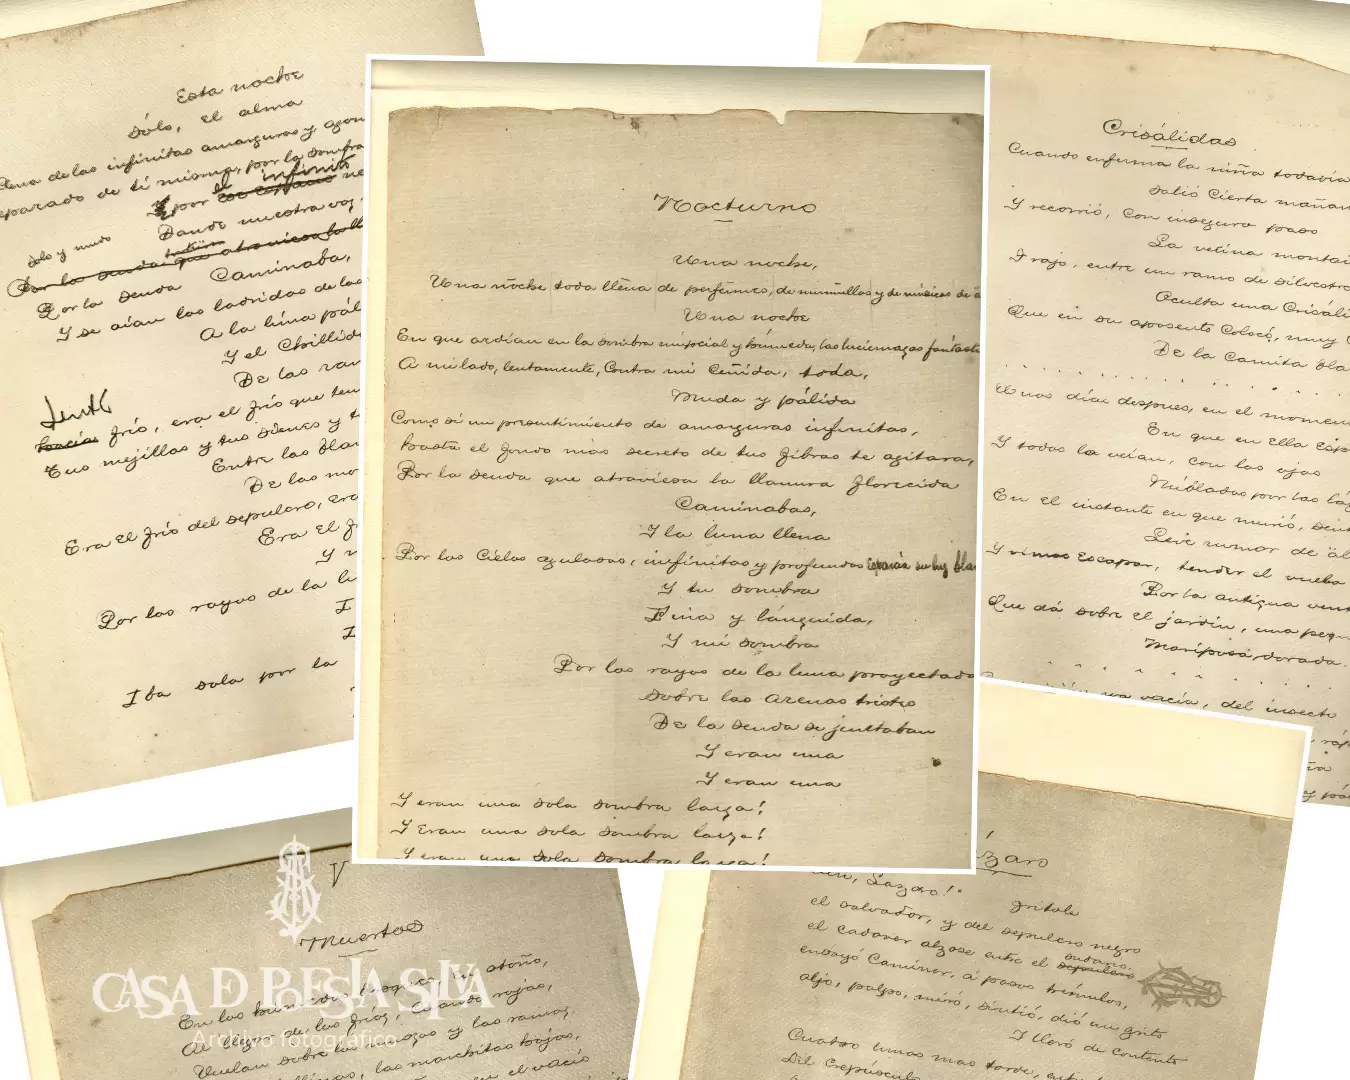 Esta noche
Sólo, el alma
llena de las infinitas amarguras y agon
separado de ti misma, por la sombra
el infinito
Y por ne
Donde nuestra voz
Solo y mudo
Por la senda que atraviesa la ll
Por la senda Caminaba,
Y se oían los ladridos de los
A la luna pál
Y el Chillido
De las ran
Sentí
frío, era el frío que ten
Tus mejillas y tus sienes y t
Entre las blan
De las mo
Era el frío del sepulcro, era
Era el f
Y
Por los rayos de la lu
I
I
Iba sola por la
Nocturno
Una noche,
Una noche toda llena de perfumes, de murmullos y de músicas de a
Una noche
En que ardían en la sombra nupcial y húmeda, las luciernagas fantast
A mi lado, lentamente, Contra mi Ceñida, toda,
Muda y pálida
Como si un presentimiento de amarguras infinitas,
hasta el fondo más secreto de tus fibras te agitara,
Por la senda que atraviesa la llanura florecida
Caminabas,
Y la luna llena
Por los Cielos azulosos, infinitos y profundos esparcía su luz blan
Y tu sombra
Fina y lánguida,
Y mi sombra
Por los rayos de la luna proyectada
Sobre las arenas tristes
De la senda se juntaban
Y eran una
Y eran una
Y eran una sola sombra larga!
Y Eran una sola sombra larga!
Y eran una sola sombra larga!
Crisálidas
Cuando enferma la niña todavía
Salió Cierta mañan
Y recorrió, Con inseguro paso
La vecina montañ
Trajo, entre un ramo de silvestre
Oculta una Crisáli
Que en su aposento Colocó, muy c
De la Camita bla
Unos días después, en el momen
En que en Ella Esp
Y todos la veían, con los ojos
Nublados por las lág
En el instante en que murió, sent
Leve rumor de al
Y vimos Escapar, tender el vuelo
Por la antigua vent
Que dá sobre el jardín, una pequ
Mariposa dorada.
vacía, del insecto
ráp
y pál
V
Muertos
En los húmedos bosques, en otoño,
Al llegar de los fríos, cuando rojas,
Vuelan sobre los musgos y las ramas,
las marchitas hojas,
en el vacío
ázaro
Ven, Lazaro!"
gritole
el salvador, y del sepulcro negro
el Cadaver alzose entre el sudario
sepulcro
ensayó Caminar, á pasos trémulos,
olió, palpó, miró, sintió, dió un grito
Y lloró de Contento
Cuatro lunas mas tarde, entre
Del Crepusculo
CASA DE POESÍA SILVA
Archivo fotográfico